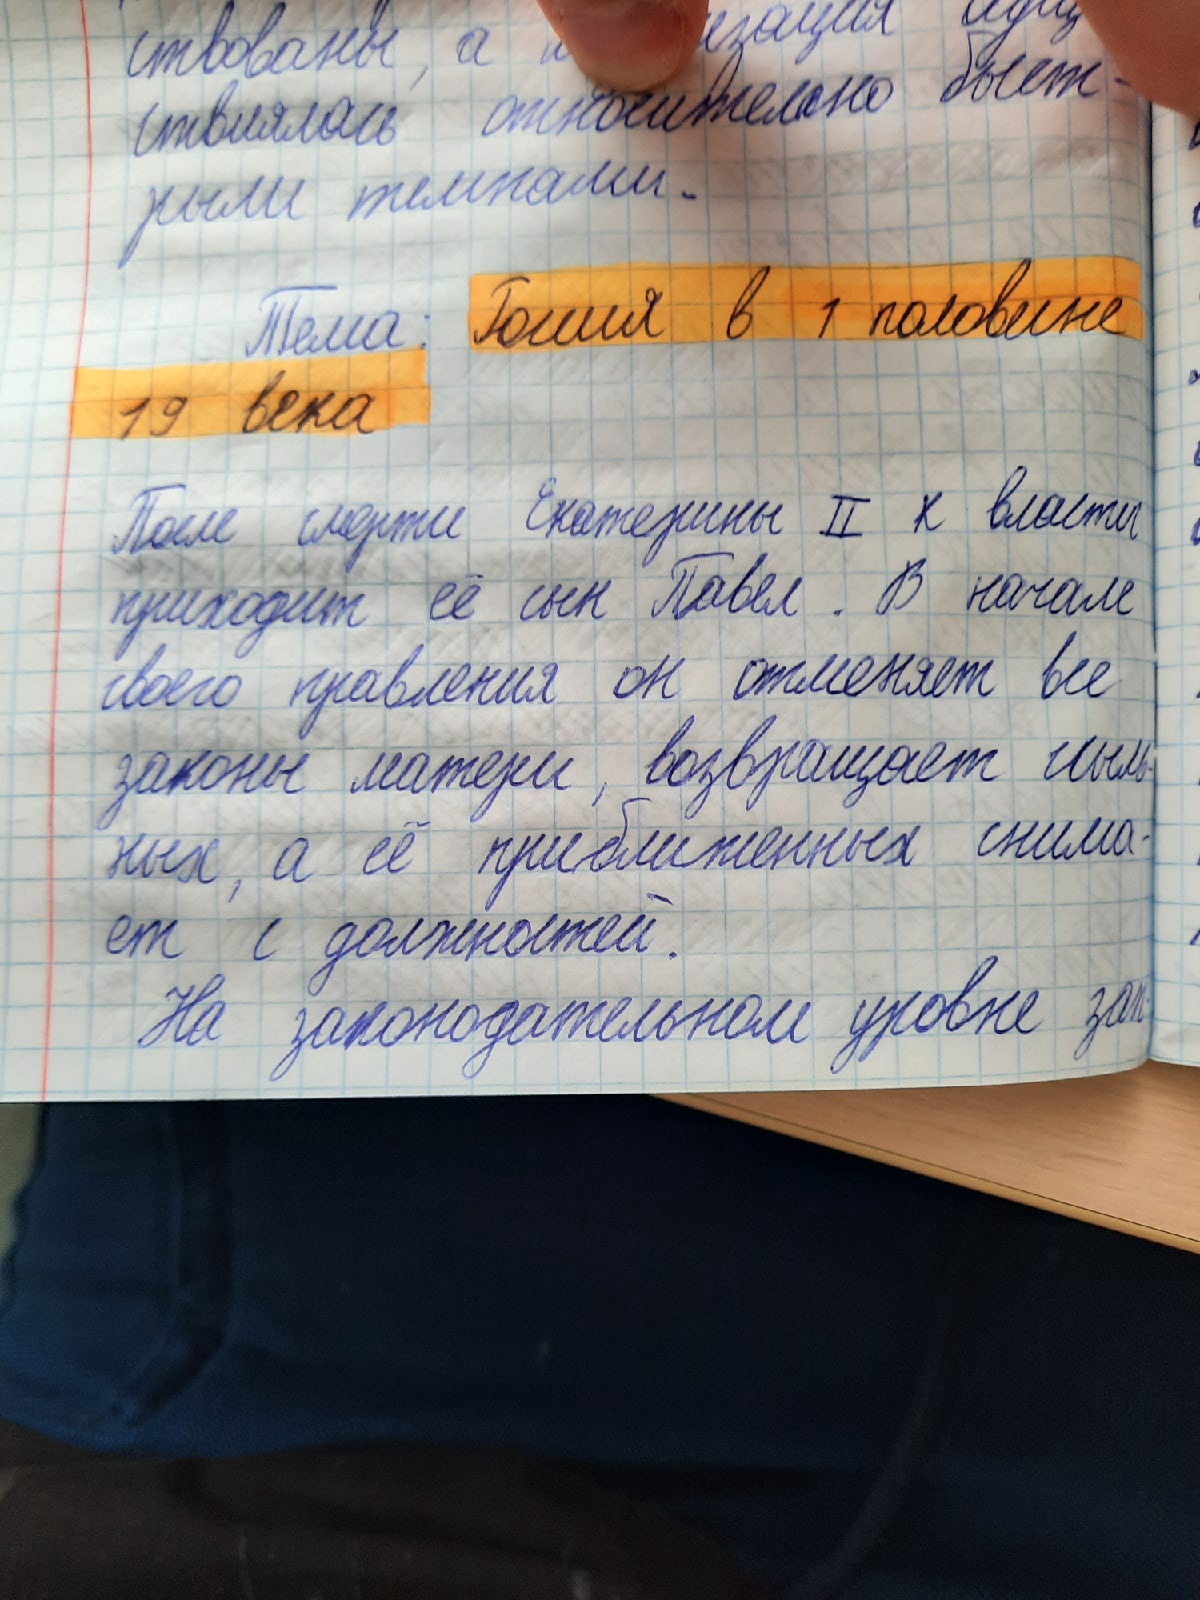 ствованы, а
ствлялась относительно быст-
рыми темпами.
Тема: Россия в 1 половине
19 века
После смерти Екатерины II к власти
приходит её сын Павел. В начале
своего правления он отменяет все
законы матери, возвращает ссыль-
ных, а её приближенных снима-
ет с должностей.
На законодательном уровне зак-